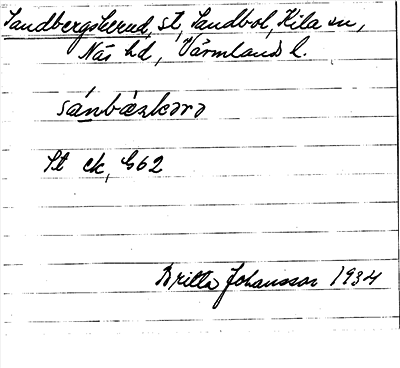 Sandbergskerud, st, Sandbol, Kila sn,
Näs hd, Värmlands l.
sánbæskərə
St ek, G62
Britta Johansson 1934